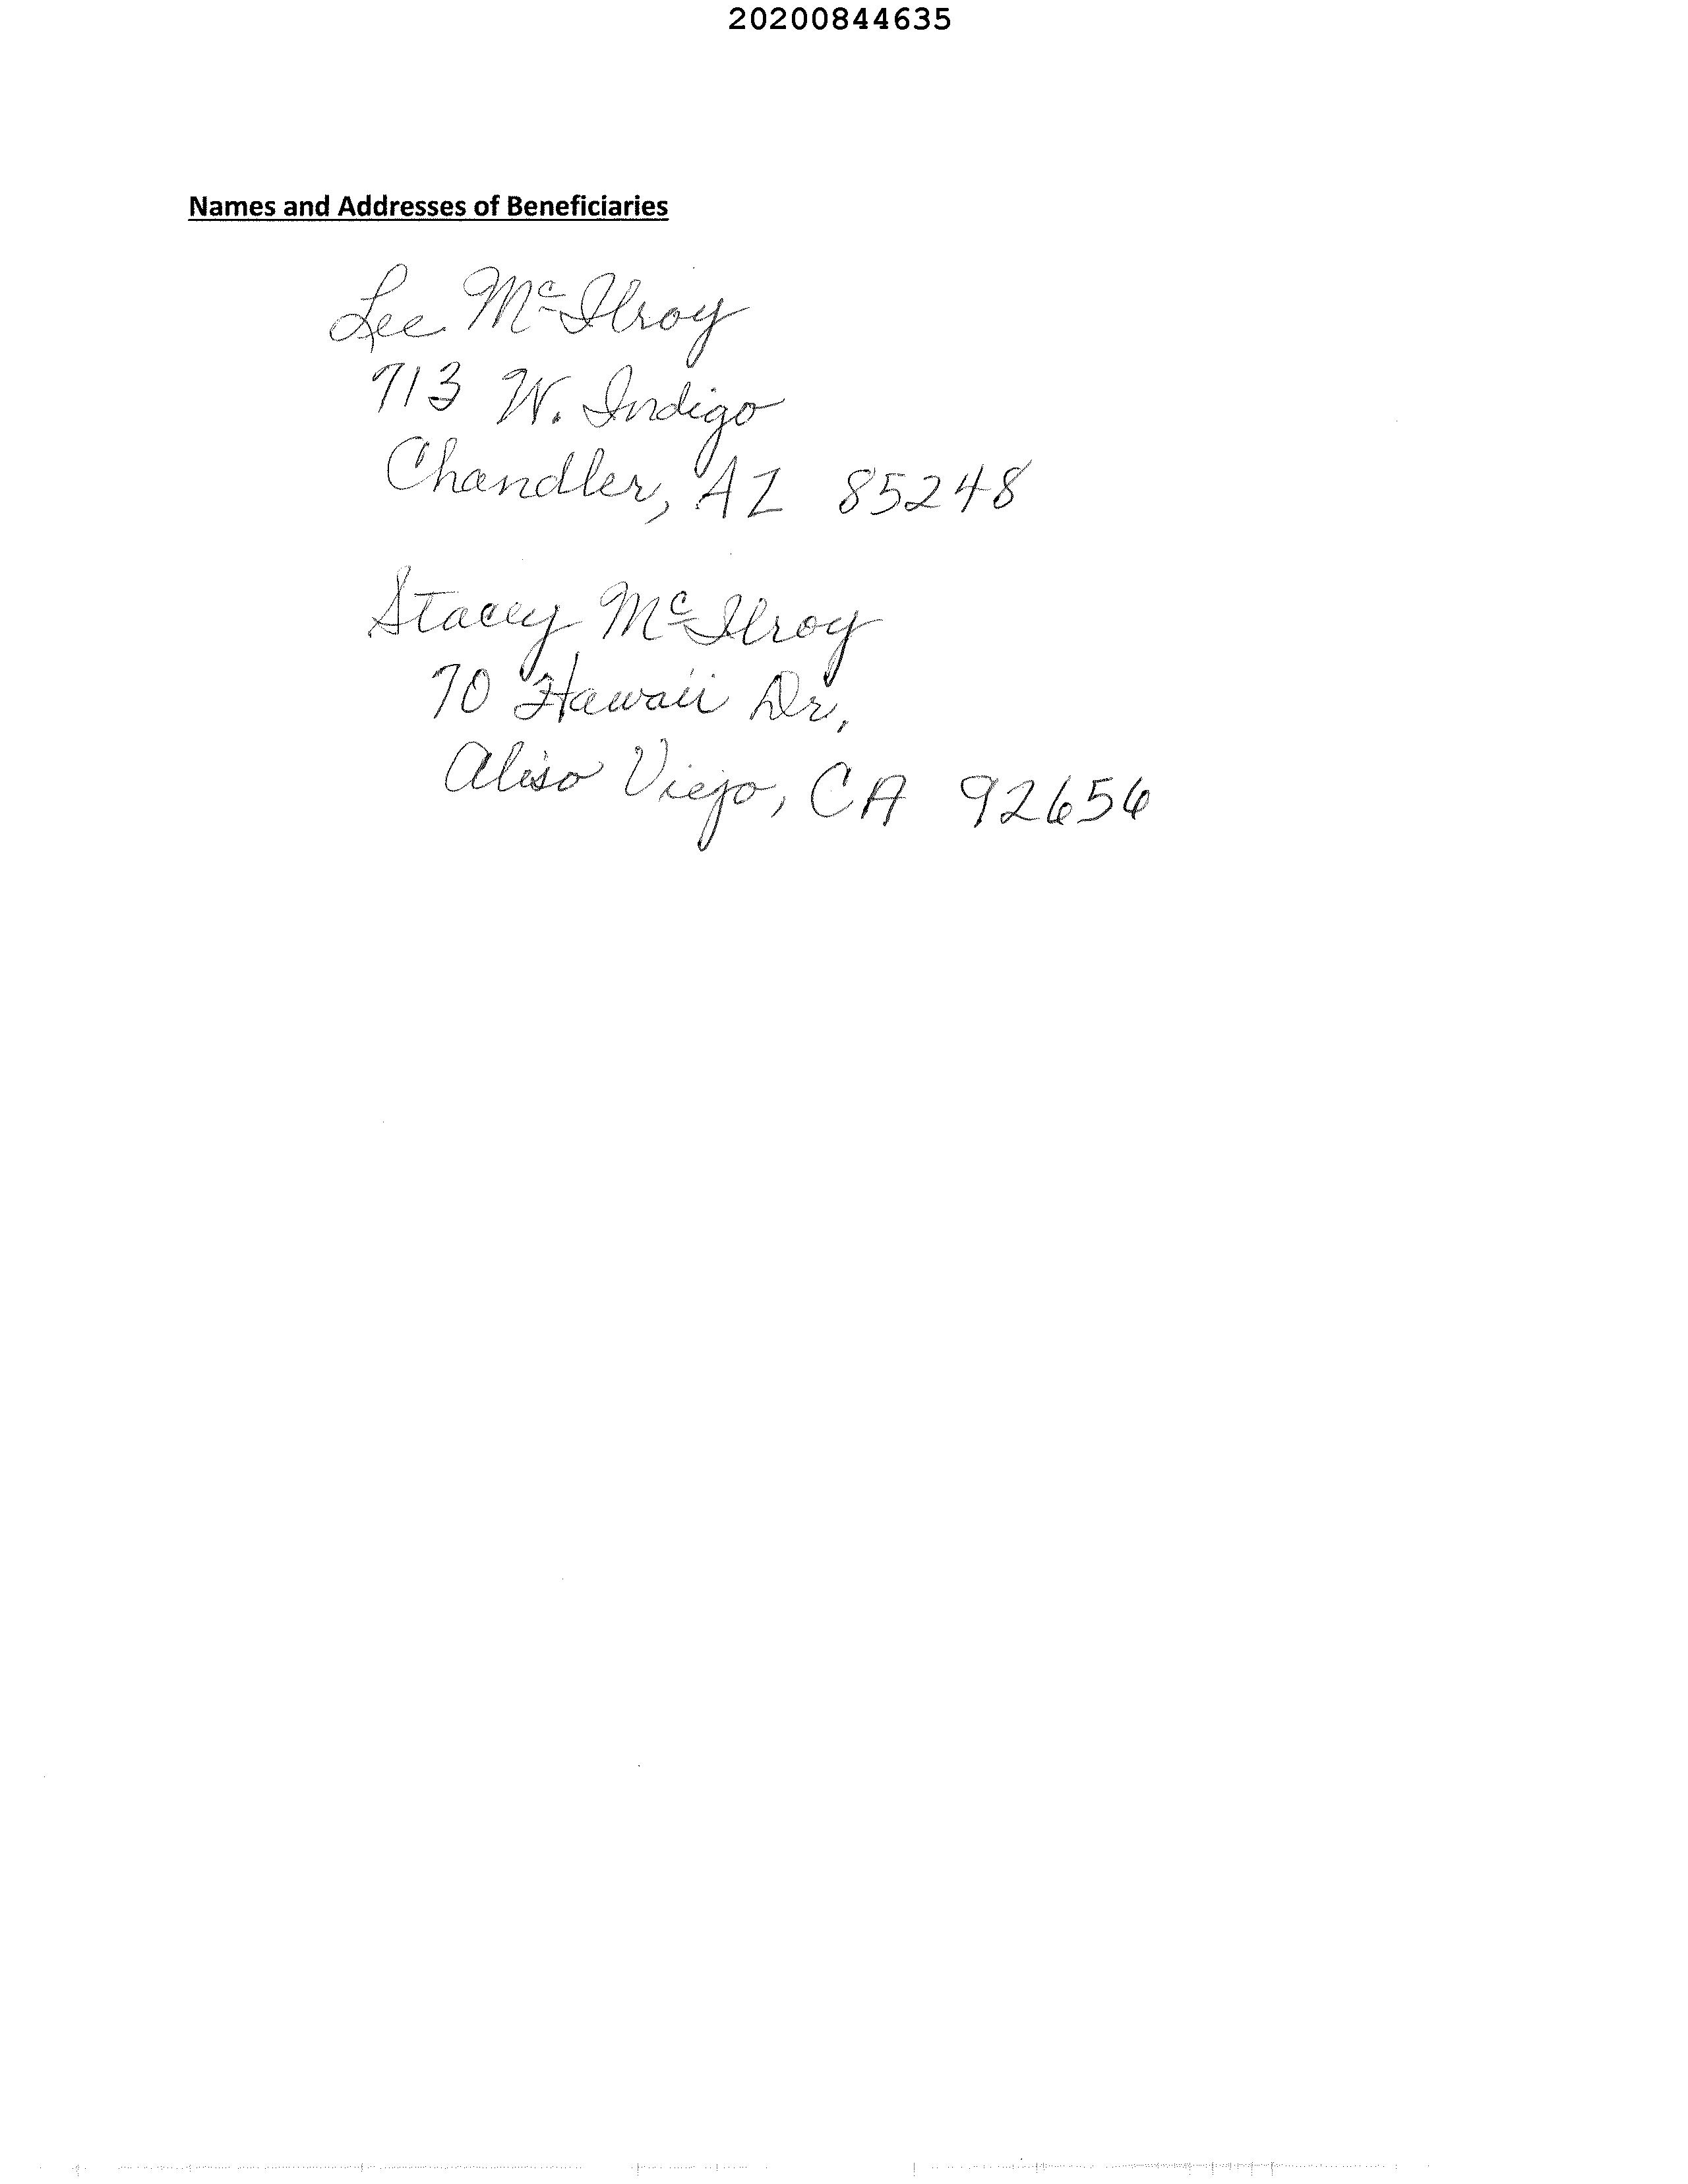 20200844635
Names and Addresses of Beneficiaries
Lee McIlroy
713 W. Indigo
Chandler, AZ 85248
Stacey McIlroy
70 Hawaii Dr,
Aliso Viejo, CA 92656